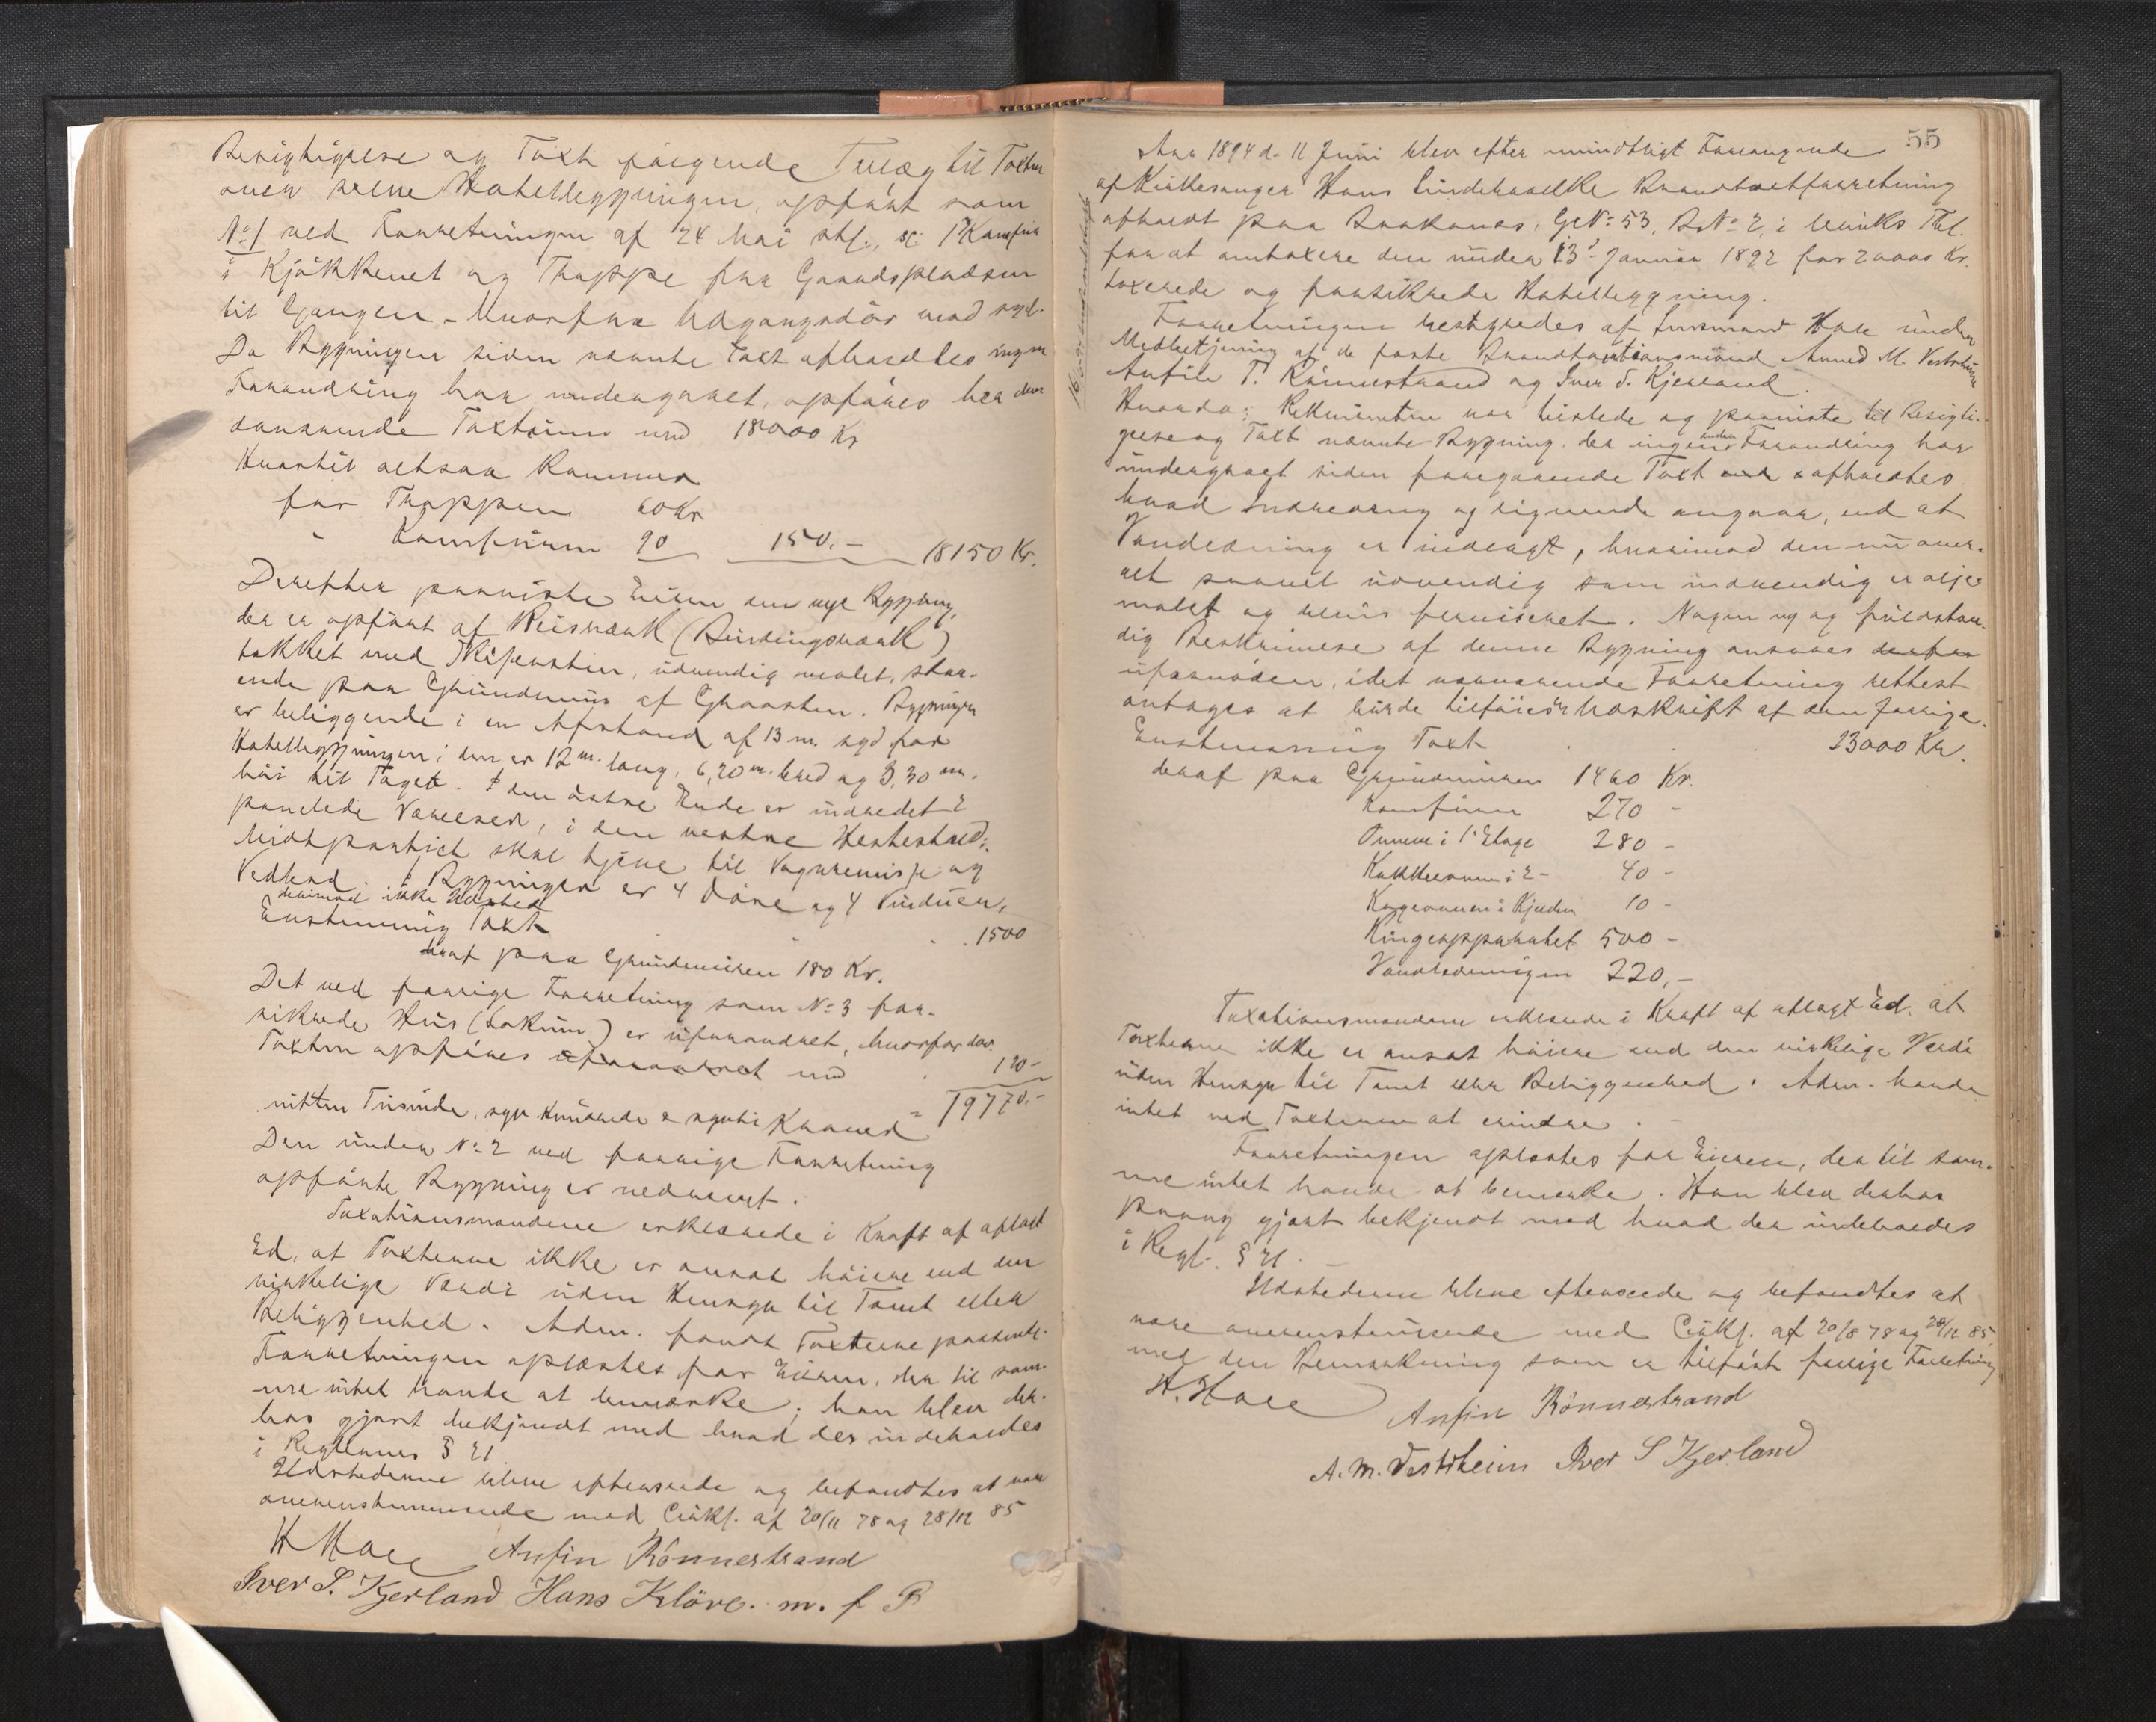 Besigtigelse og Taxt følgende Tillæg til Taxten
over selve Hotelbygningen, opført som
No 1 ved Forretningen af 24 Mai
i Kjøkkenet og Trappe fra Gaardspladsen
til Gangen - Hvorfra Udgangsdør mod syd.
Da Bygningen siden nævnte Taxt afholdtes ingen
Forandring har undergaaet, opføres her den
daværende Taxtsum med 18000 Kr
Hvortil altsaa kommer
for Trappen 60 Kr
" Komfuren 90 150.- 18150 Kr.
Derefter paaviste Eieren en nye Bygning,
der er opført af Reisværk (Bindingsværk)
tækket med Skifersten, udvendig malet, staa-
ende paa Grundmur af Graasten. Bygningen
er beliggende i en Afstand af 13 m. syd for
Hotelbygningen; den er 12 m. lang, 6,20 m. bred og 3,30 m.
høi til Taget. I den østre Ende er indredet 2
panelede Værelser, i den vestre Hestestald;
Midtpartiet skal tjene til Vognremisse og
Vedbod. I Bygningen er 4 Døre og 4 Vinduer,
derimod ikke Ildsted
Enstemmig Taxt 1500
deraf paa Grundmuren 180 Kr.
Det ved forrige Forretning som No 3 for-
sikrede Hus (Lokum) er uforandret, hvorfor
Taxten opføres uforandret med 120-
= 19770.-
nitten Tusinde, syv Hundrede & sytti Kroner
Den under No 2 ved forrige Forretning
opførte Bygning er nedrevet.
Taxationsmændene erklærede i Kraft af aflagt
Ed, at Taxterne ikke er ansat høiere end den
virkelige Værdi uden Hensyn til Tomt eller
Beliggenhed. Adm. fandt Taxterne passende.
Forretningen oplæstes for Eieren, der til sam-
me intet havde at bemærke; han blev der-
hos gjort bekjendt med hvad der indeholdes
i Reglernes § 21
Ildstederne bleve efterseede og befandtes at være
overensstemmende med Cirkl. af 20/11 78 og 28/12 85
H Hoel Anfin Rönnestrand
Iver S. Kjerland Hans Klöve. m. f P
55
Aar 1894 d. 11 Juni blev efter mundtligt Forlangende
af Kirkesanger Hans Lindebrække Brandtaxtforretning
afholdt paa Brakanes, G No 53, B No 2, i Ulviks Thl.
for at omtaxere den under 13 Januar 1892 for 20000 Kr.
taxerede og forsikrede Hotelbygning.
Forretningen bestyredes af Lensmand Hoel under
Medbetjening af de faste Brandtaxtionsmænd Amund M. Vestrheim
Anfin T. Rönnestrand og Iver S. Kjerland.
Hvorda: Rekvirenten var tilstede og paaviste til Besigti-
gelse og Taxt nævnte Bygning, der ingen anden Forandring har
undergaaet siden foregaaende Taxt afholdtes
hvad Indredning og lignende angaar, end at
Vandledning er indlagt, hvorimod den nu over-
alt saavel udvendig som indvendig er olje-
malet og delvis ferniseret. Nogen ny og fuldstæn-
dig Beskrivelse af denne Bygning ansaaes derfor
ufornøden, idet nærværende Forretning rettest
antages at burde tilføies Udskrift af den forrige.
Enstemmig Taxt 23000 Kr.
deraf paa Grundmuren 1460 Kr.
Komfuren 270 -
Ovnene i 1' Etage 280 -
Kakkelovnen i 2 - 40 -
Kogeovnen i Kjelderen 10 -
Ringeapparatet 500 -
Vandledningen 220.-
Taxationsmændene erklærede i Kraft af aflagt Ed. at
Taxterne ikke er ansat høiere end den virkelige Værdi
uden Hensyn til Tomt eller Beliggenhed. Adm. havde
intet ved Taxterne at erindre.
Forretningen oplæstes for Eieren, der til sam-
me intet havde at bemærke. Han blev derhos
paany gjort bekjendt med hvad der indeholdes
i Regl. § 21.
Ildstederne bleve efterseede og befandtes at
være overensstemmende med Cirkl. af 20/8 78 og 28/12 85,
med den Bemærkning som er tilført forrige Forretning
H. Hoel
Anfin Rönnestrand
A. M. Vestrheim Iver S Kjerland